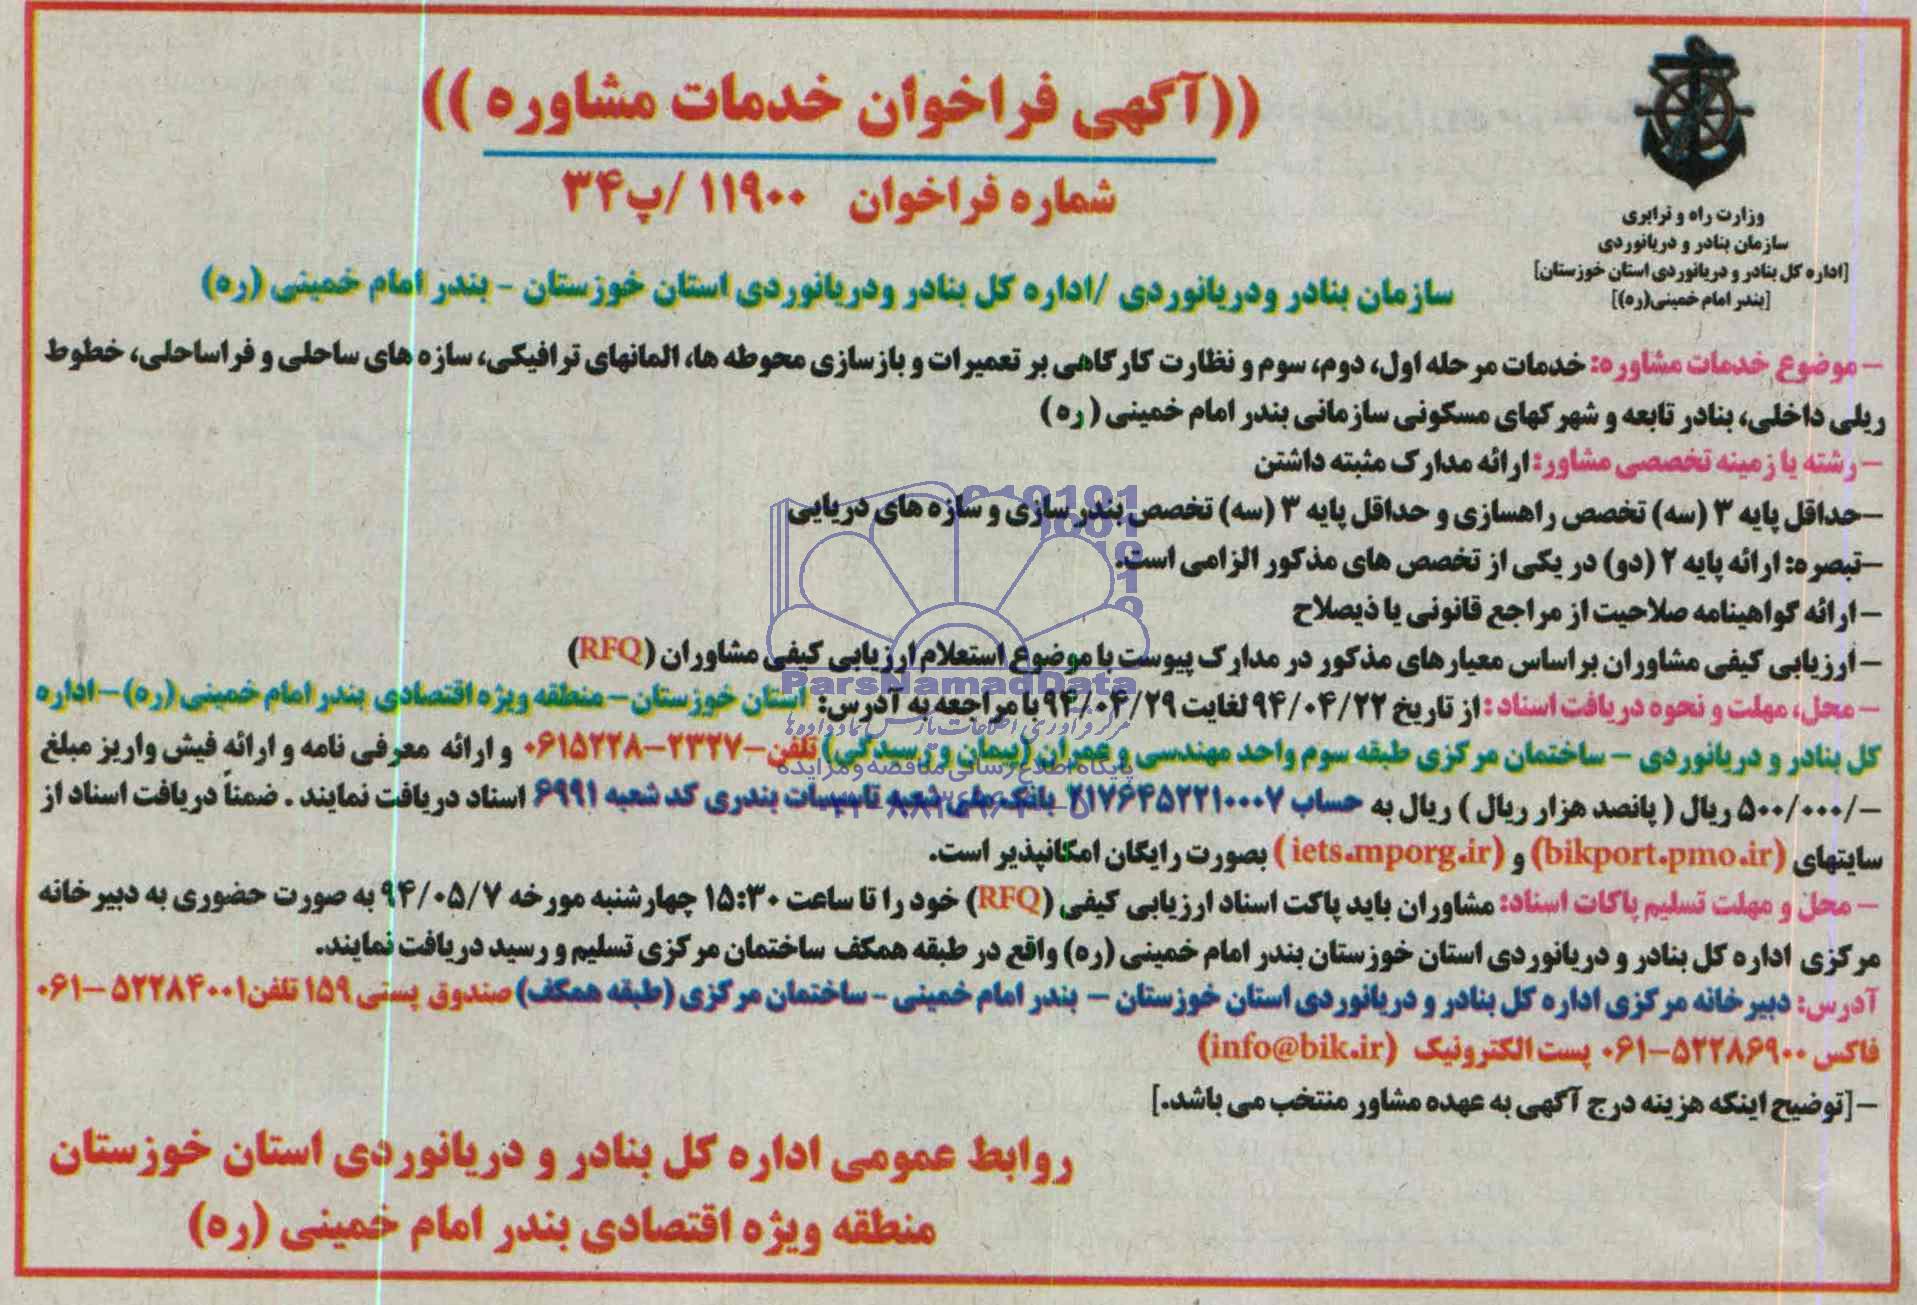 ((آگهی فراخوان خدمات مشاوره))
شماره فراخوان ۱۱۹۰۰/پ۳۴
وزارت راه و ترابری
سازمان بنادر و دریانوردی
[اداره کل بنادر و دریانوردی استان خوزستان]
[بندر امام خمینی(ره)]
سازمان بنادر ودریانوردی /اداره کل بنادر ودریانوردی استان خوزستان - بندر امام خمینی (ره)
- موضوع خدمات مشاوره: خدمات مرحله اول، دوم، سوم و نظارت کارگاهی بر تعمیرات و بازسازی محوطه ها، المانهای ترافیکی، سازه های ساحلی و فراساحلی، خطوط
ریلی داخلی، بنادر تابعه و شهرکهای مسکونی سازمانی بندر امام خمینی (ره)
- رشته یا زمینه تخصصی مشاور: ارائه مدارک مثبته داشتن
-حداقل پایه ۳ (سه) تخصص راهسازی و حداقل پایه ۳ (سه) تخصص بندر سازی و سازه های دریایی
-تبصره: ارائه پایه ۲ (دو) در یکی از تخصص های مذکور الزامی است.
- ارائه گواهینامه صلاحیت از مراجع قانونی یا ذیصلاح
- ارزیابی کیفی مشاوران براساس معیارهای مذکور در مدارک پیوست با موضوع استعلام ارزیابی کیفی مشاوران (RFQ)
ParsNamadData
- محل، مهلت و نحوه دریافت اسناد: از تاریخ ۹۴/۰۴/۲۲ لغایت ۹۴/۰۴/۲۹ با مراجعه به آدرس: استان خوزستان- منطقه ویژه اقتصادی بندر امام خمینی (ره)- اداره
مرکز فرآوری اطلاعات پارس نماد داده‌ها
کل بنادر و دریانوردی - ساختمان مرکزی طبقه سوم واحد مهندسی و عمران (پیمان و رسیدگی) تلفن-۲۳۲۷-۰۶۱۵۲۲۸ و ارائه معرفی نامه و ارائه فیش واریز مبلغ
پایگاه اطلاع رسانی مناقصه و مزایده
-/۵۰۰/۰۰۰ ریال (پانصد هزار ریال) ریال به حساب ۲۱۷۶۴۵۲۲۱۰۰۰۷ بانک ملی شعبه تاسیسات بندری کد شعبه ۶۹۹۱ اسناد دریافت نمایند. ضمناً دریافت اسناد از
سایتهای (bikport.pmo.ir) و (iets.mporg.ir) بصورت رایگان امکانپذیر است.
- محل و مهلت تسلیم پاکات اسناد: مشاوران باید پاکت اسناد ارزیابی کیفی (RFQ) خود را تا ساعت ۱۵:۳۰ چهارشنبه مورخه ۹۴/۰۵/۷ به صورت حضوری به دبیرخانه
مرکزی اداره کل بنادر و دریانوردی استان خوزستان بندر امام خمینی (ره) واقع در طبقه همکف ساختمان مرکزی تسلیم و رسید دریافت نمایند.
آدرس: دبیرخانه مرکزی اداره کل بنادر و دریانوردی استان خوزستان - بندر امام خمینی - ساختمان مرکزی (طبقه همکف) صندوق پستی ۱۵۹ تلفن ۵۲۲۸۴۰۰۱-۰۶۱
فاکس ۵۲۲۸۶۹۰۰-۰۶۱ پست الکترونیک (info@bik.ir)
-[توضیح اینکه هزینه درج آگهی به عهده مشاور منتخب می باشد.]
روابط عمومی اداره کل بنادر و دریانوردی استان خوزستان
منطقه ویژه اقتصادی بندر امام خمینی (ره)